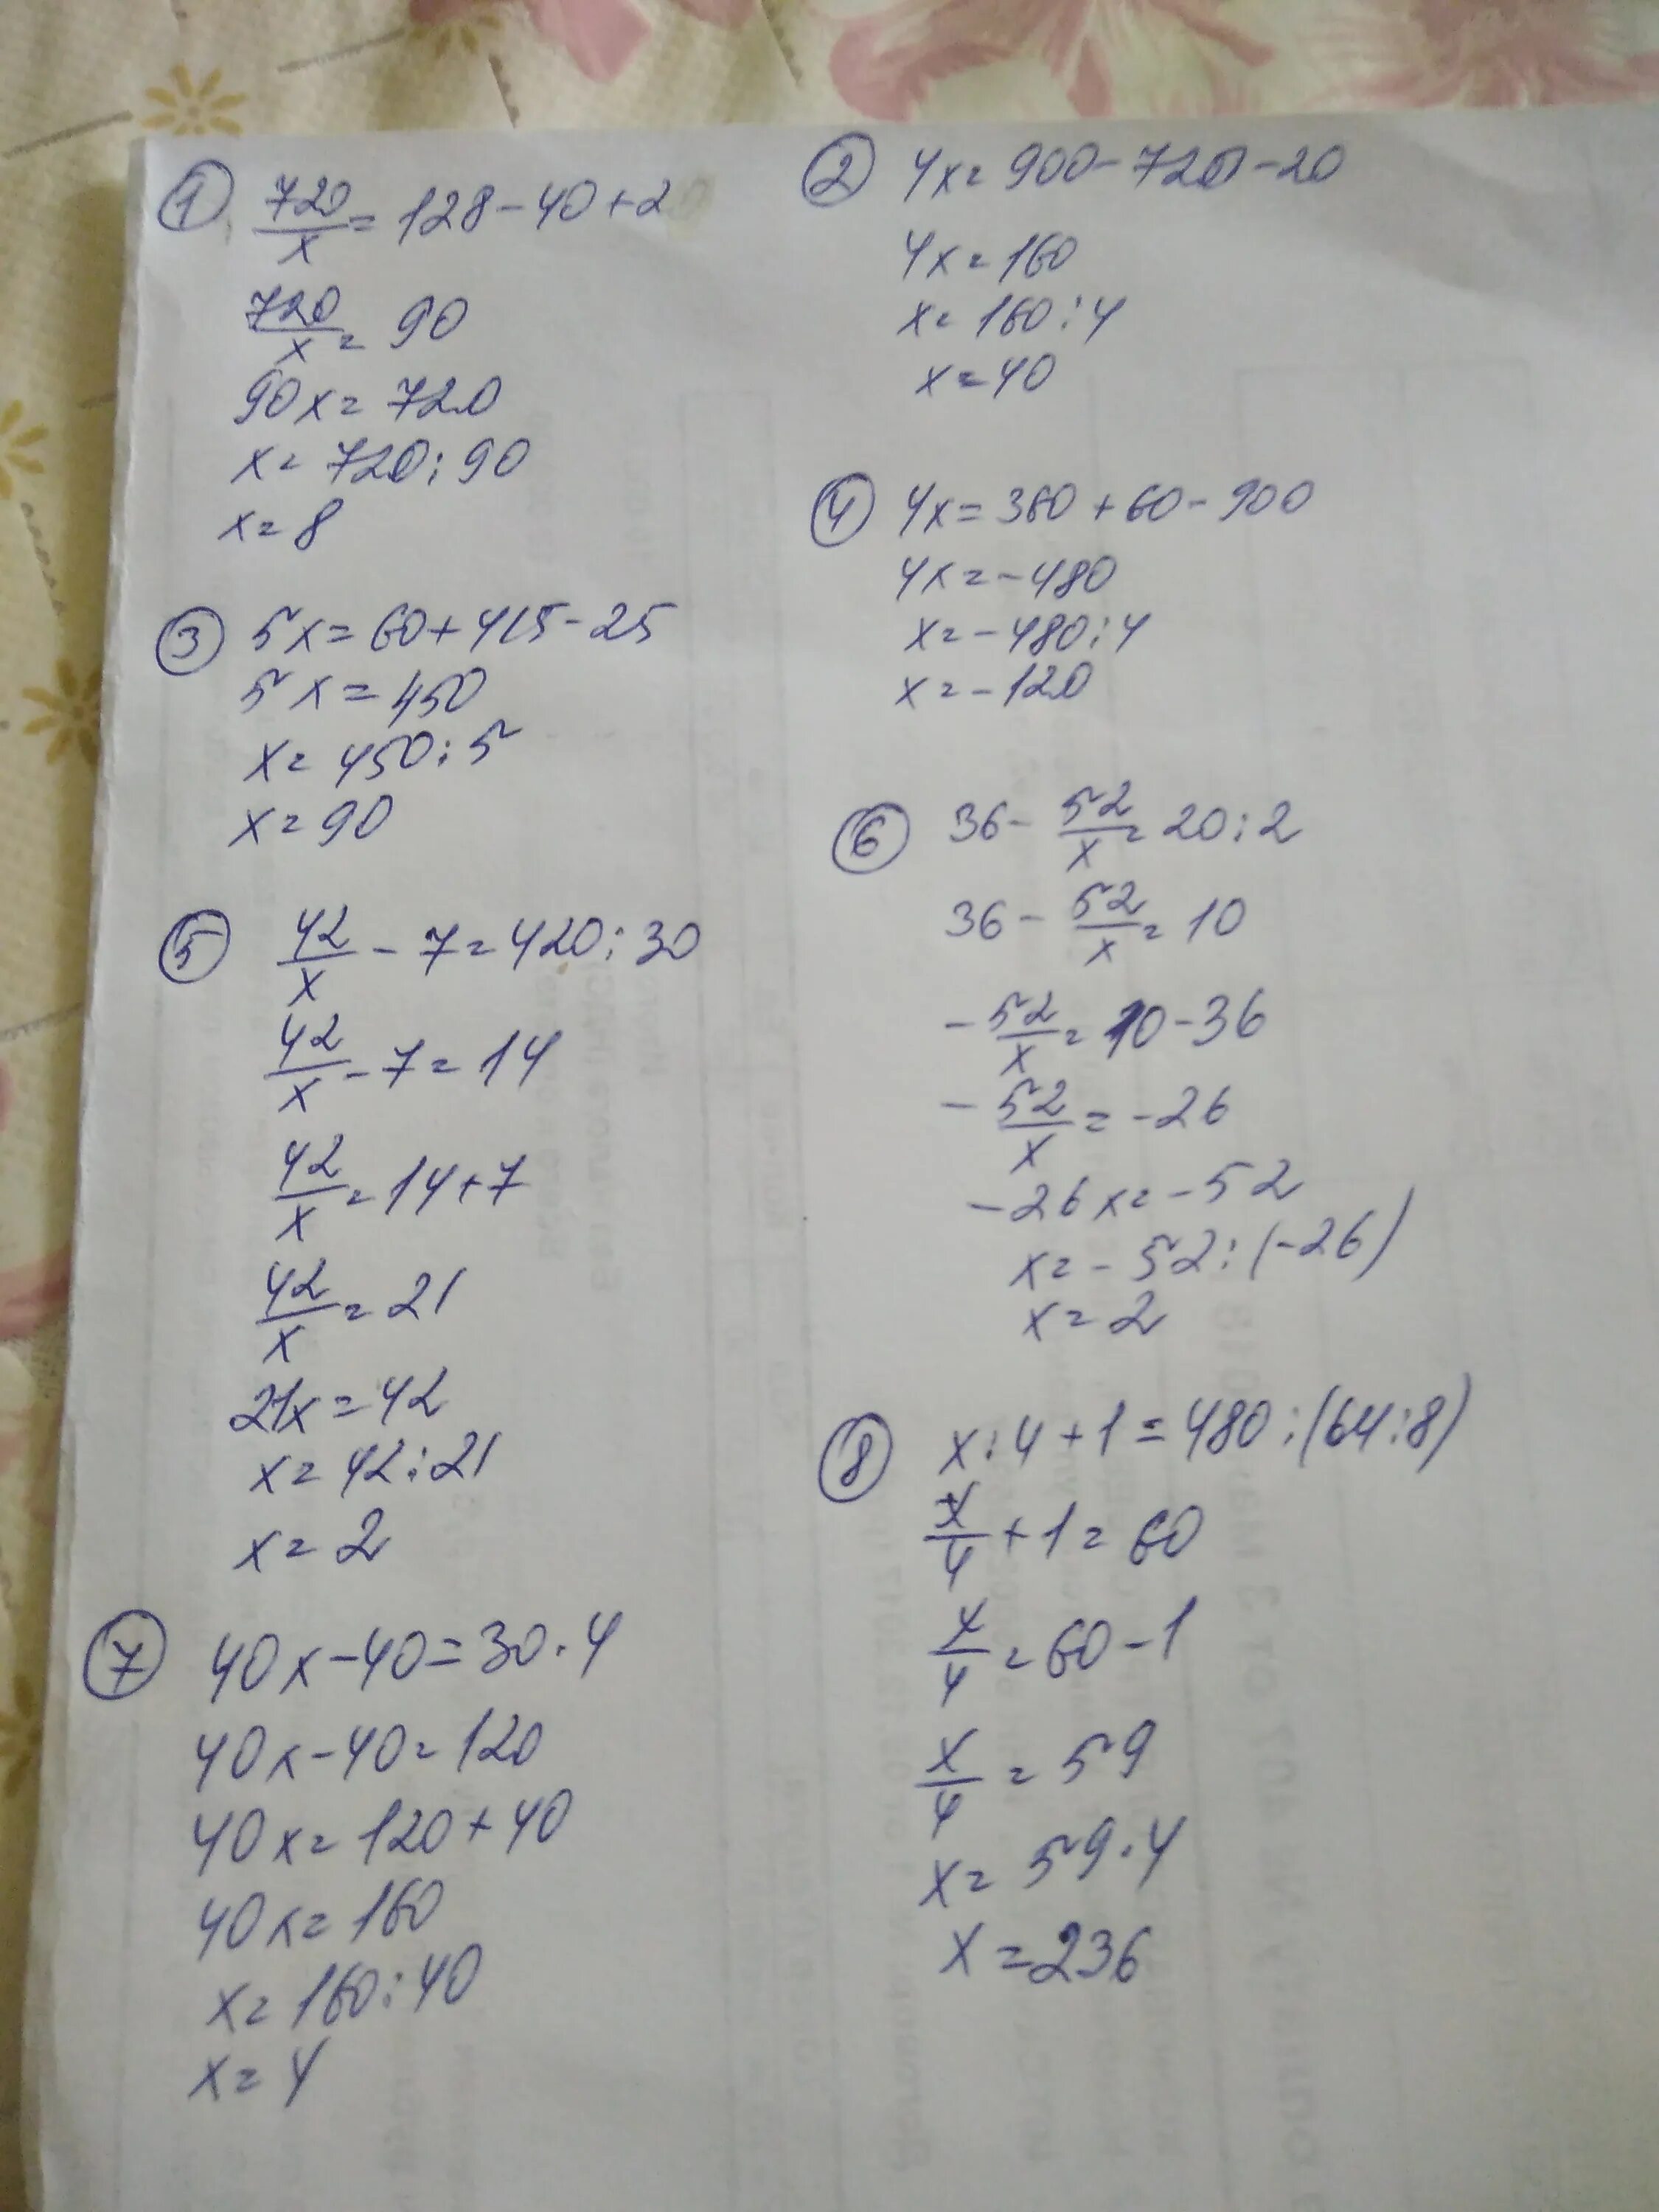 ① 720/x = 128 - 40 + 2
720/x = 90
90x = 720
x = 720 : 90
x = 8
② 4x = 900 - 720 - 20
4x = 160
x = 160 : 4
x = 40
③ 5x = 60 + 415 - 25
5x = 450
x = 450 : 5
x = 90
④ 4x = 360 + 60 - 900
4x = -480
x = -480 : 4
x = -120
⑤ 42/x - 7 = 420 : 30
42/x - 7 = 14
42/x = 14 + 7
42/x = 21
21x = 42
x = 42 : 21
x = 2
⑥ 36 - 52/x = 20 : 2
36 - 52/x = 10
-52/x = 10 - 36
-52/x = -26
-26x = -52
x = -52 : (-26)
x = 2
⑦ 40x - 40 = 30 · 4
40x - 40 = 120
40x = 120 + 40
40x = 160
x = 160 : 40
x = 4
⑧ x : 4 + 1 = 480 : (64 : 8)
x/4 + 1 = 60
x/4 = 60 - 1
x/4 = 59
x = 59 · 4
x = 236